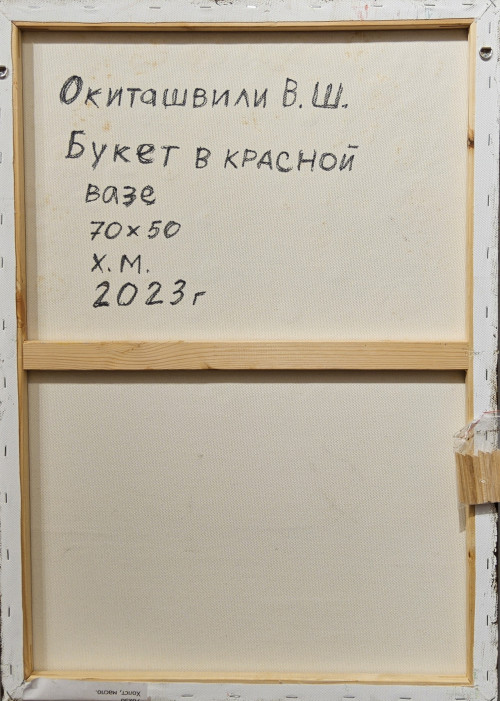 Окиташвили В.Ш.
Букет в красной
вазе
70×50
Х.М.
2023г
Холст, масло.